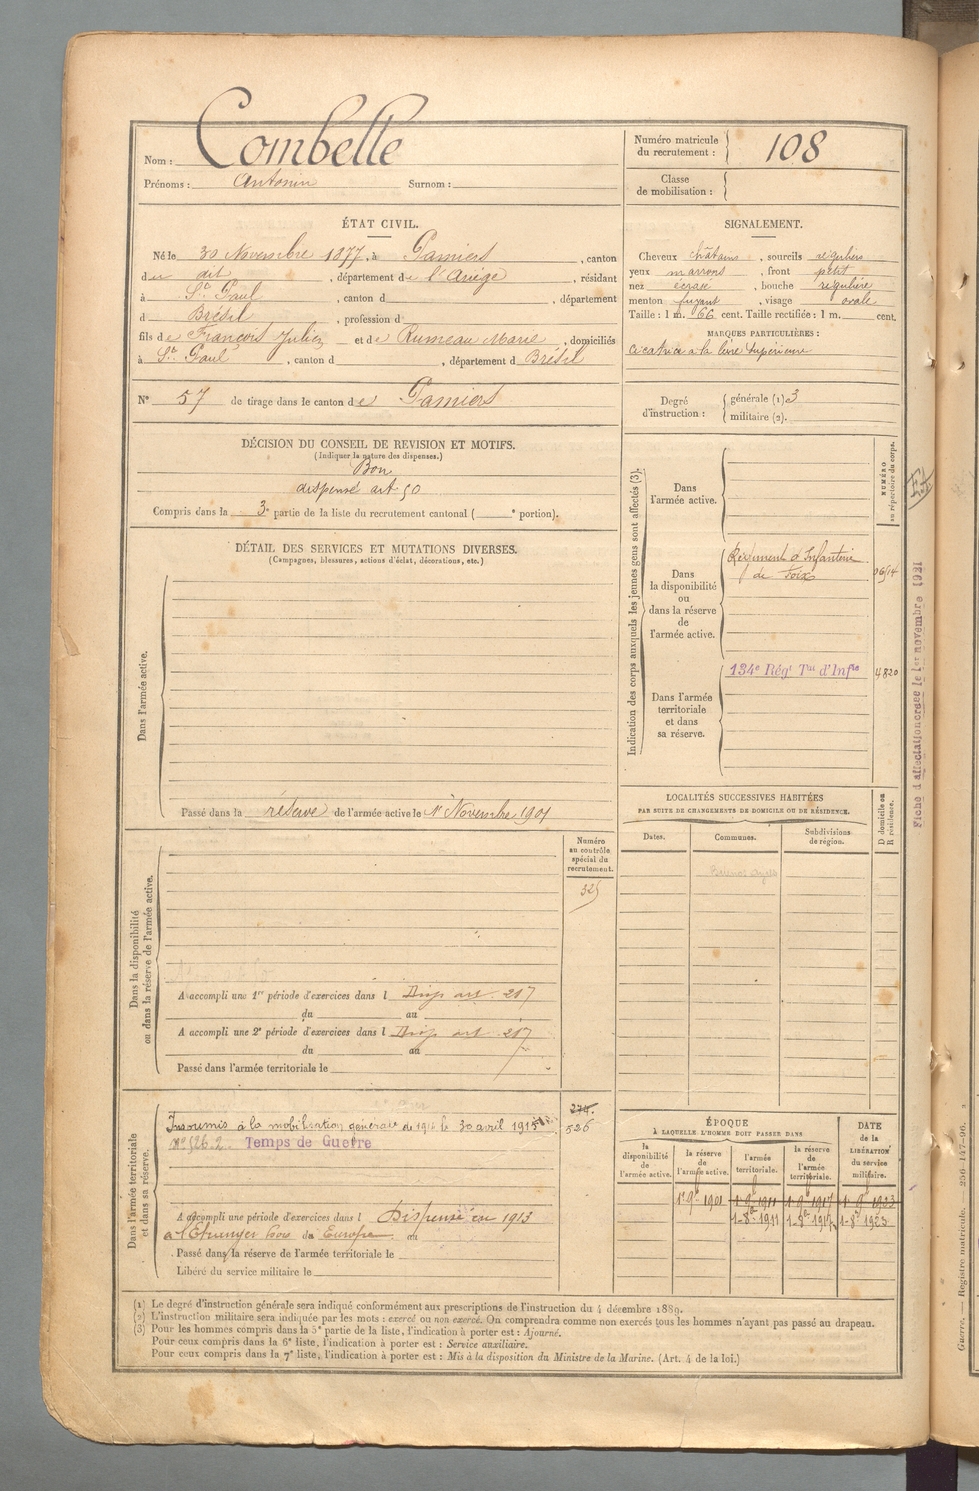 Nom : Combelle
Prénoms : Antonin Surnom :
Numéro matricule du recrutement : 108
Classe de mobilisation :
ÉTAT CIVIL.
Né le 30 Novembre 1877, à Pamiers, canton
du dit, département de l'Ariège, résidant
à St Paul, canton d , département
d Brésil, profession d
fils de François Julien et de Rumeau Marie, domiciliés
à St Paul, canton d , département d Brésil
N° 57 de tirage dans le canton de Pamiers
SIGNALEMENT.
Cheveux châtains, sourcils réguliers
yeux marrons, front petit
nez écrasé, bouche régulière
menton fuyant, visage ovale
Taille : 1 m. 66 cent. Taille rectifiée : 1 m. cent.
MARQUES PARTICULIÈRES :
Cicatrice à la lèvre supérieure
Degré d'instruction : générale (1) 3
militaire (2).
DÉCISION DU CONSEIL DE REVISION ET MOTIFS.
(Indiquer la nature des dispenses.)
Bon
dispensé art 50
Compris dans la 3e partie de la liste du recrutement cantonal ( e portion).
DÉTAIL DES SERVICES ET MUTATIONS DIVERSES.
(Campagnes, blessures, actions d'éclat, décorations, etc.)
Dans l'armée active.
Passé dans la réserve de l'armée active le 1er Novembre 1901
Indication des corps auxquels les jeunes gens sont affectés (3).
NUMÉRO au répertoire du corps.
Dans l'armée active.
Dans la disponibilité ou dans la réserve de l'armée active.
Régiment d'Infanterie
de Foix
Dans l'armée territoriale et dans sa réserve.
134e Régt Tal d'Infie
4820
Fiche d'affectation créée le 1er novembre 1931
LOCALITÉS SUCCESSIVES HABITÉES
PAR SUITE DE CHANGEMENTS DE DOMICILE OU DE RÉSIDENCE.
Dates. Communes. Subdivisions de région. D domicile ou R résidence.
Buenos Ayres
Numéro au contrôle spécial du recrutement.
325
Dans la disponibilité ou dans la réserve de l'armée active.
A accompli une 1re période d'exercices dans l Disp art. 217
du au
A accompli une 2e période d'exercices dans l Disp art. 217
du au
Passé dans l'armée territoriale le
Dans l'armée territoriale et dans sa réserve.
Insoumis à la mobilisation générale de 1914 le 30 avril 1915
Temps de Guerre
526
A accompli une période d'exercices dans l Dispensé en 1913
à l'Etranger hors du Europe au
Passé dans la réserve de l'armée territoriale le
Libéré du service militaire le
ÉPOQUE
À LAQUELLE L'HOMME DOIT PASSER DANS
la disponibilité de l'armée active. la réserve de l'armée active. l'armée territoriale. la réserve de l'armée territoriale. DATE de la LIBÉRATION du service militaire.
1-9bre 1901 1-9bre 1911 1-9bre 1917 1-9bre 1923
1-8bre 1911 1-8bre 1917 1-8bre 1923
(1) Le degré d'instruction générale sera indiqué conformément aux prescriptions de l'instruction du 4 décembre 1889.
(2) L'instruction militaire sera indiquée par les mots : exercé ou non exercé. On comprendra comme non exercés tous les hommes n'ayant pas passé au drapeau.
(3) Pour les hommes compris dans la 5e partie de la liste, l'indication à porter est : Ajourné.
Pour ceux compris dans la 6e liste, l'indication à porter est : Service auxiliaire.
Pour ceux compris dans la 7e liste, l'indication à porter est : Mis à la disposition du Ministre de la Marine. (Art. 4 de la loi.)
Guerre. — Registre matricule. — 256-147-96.